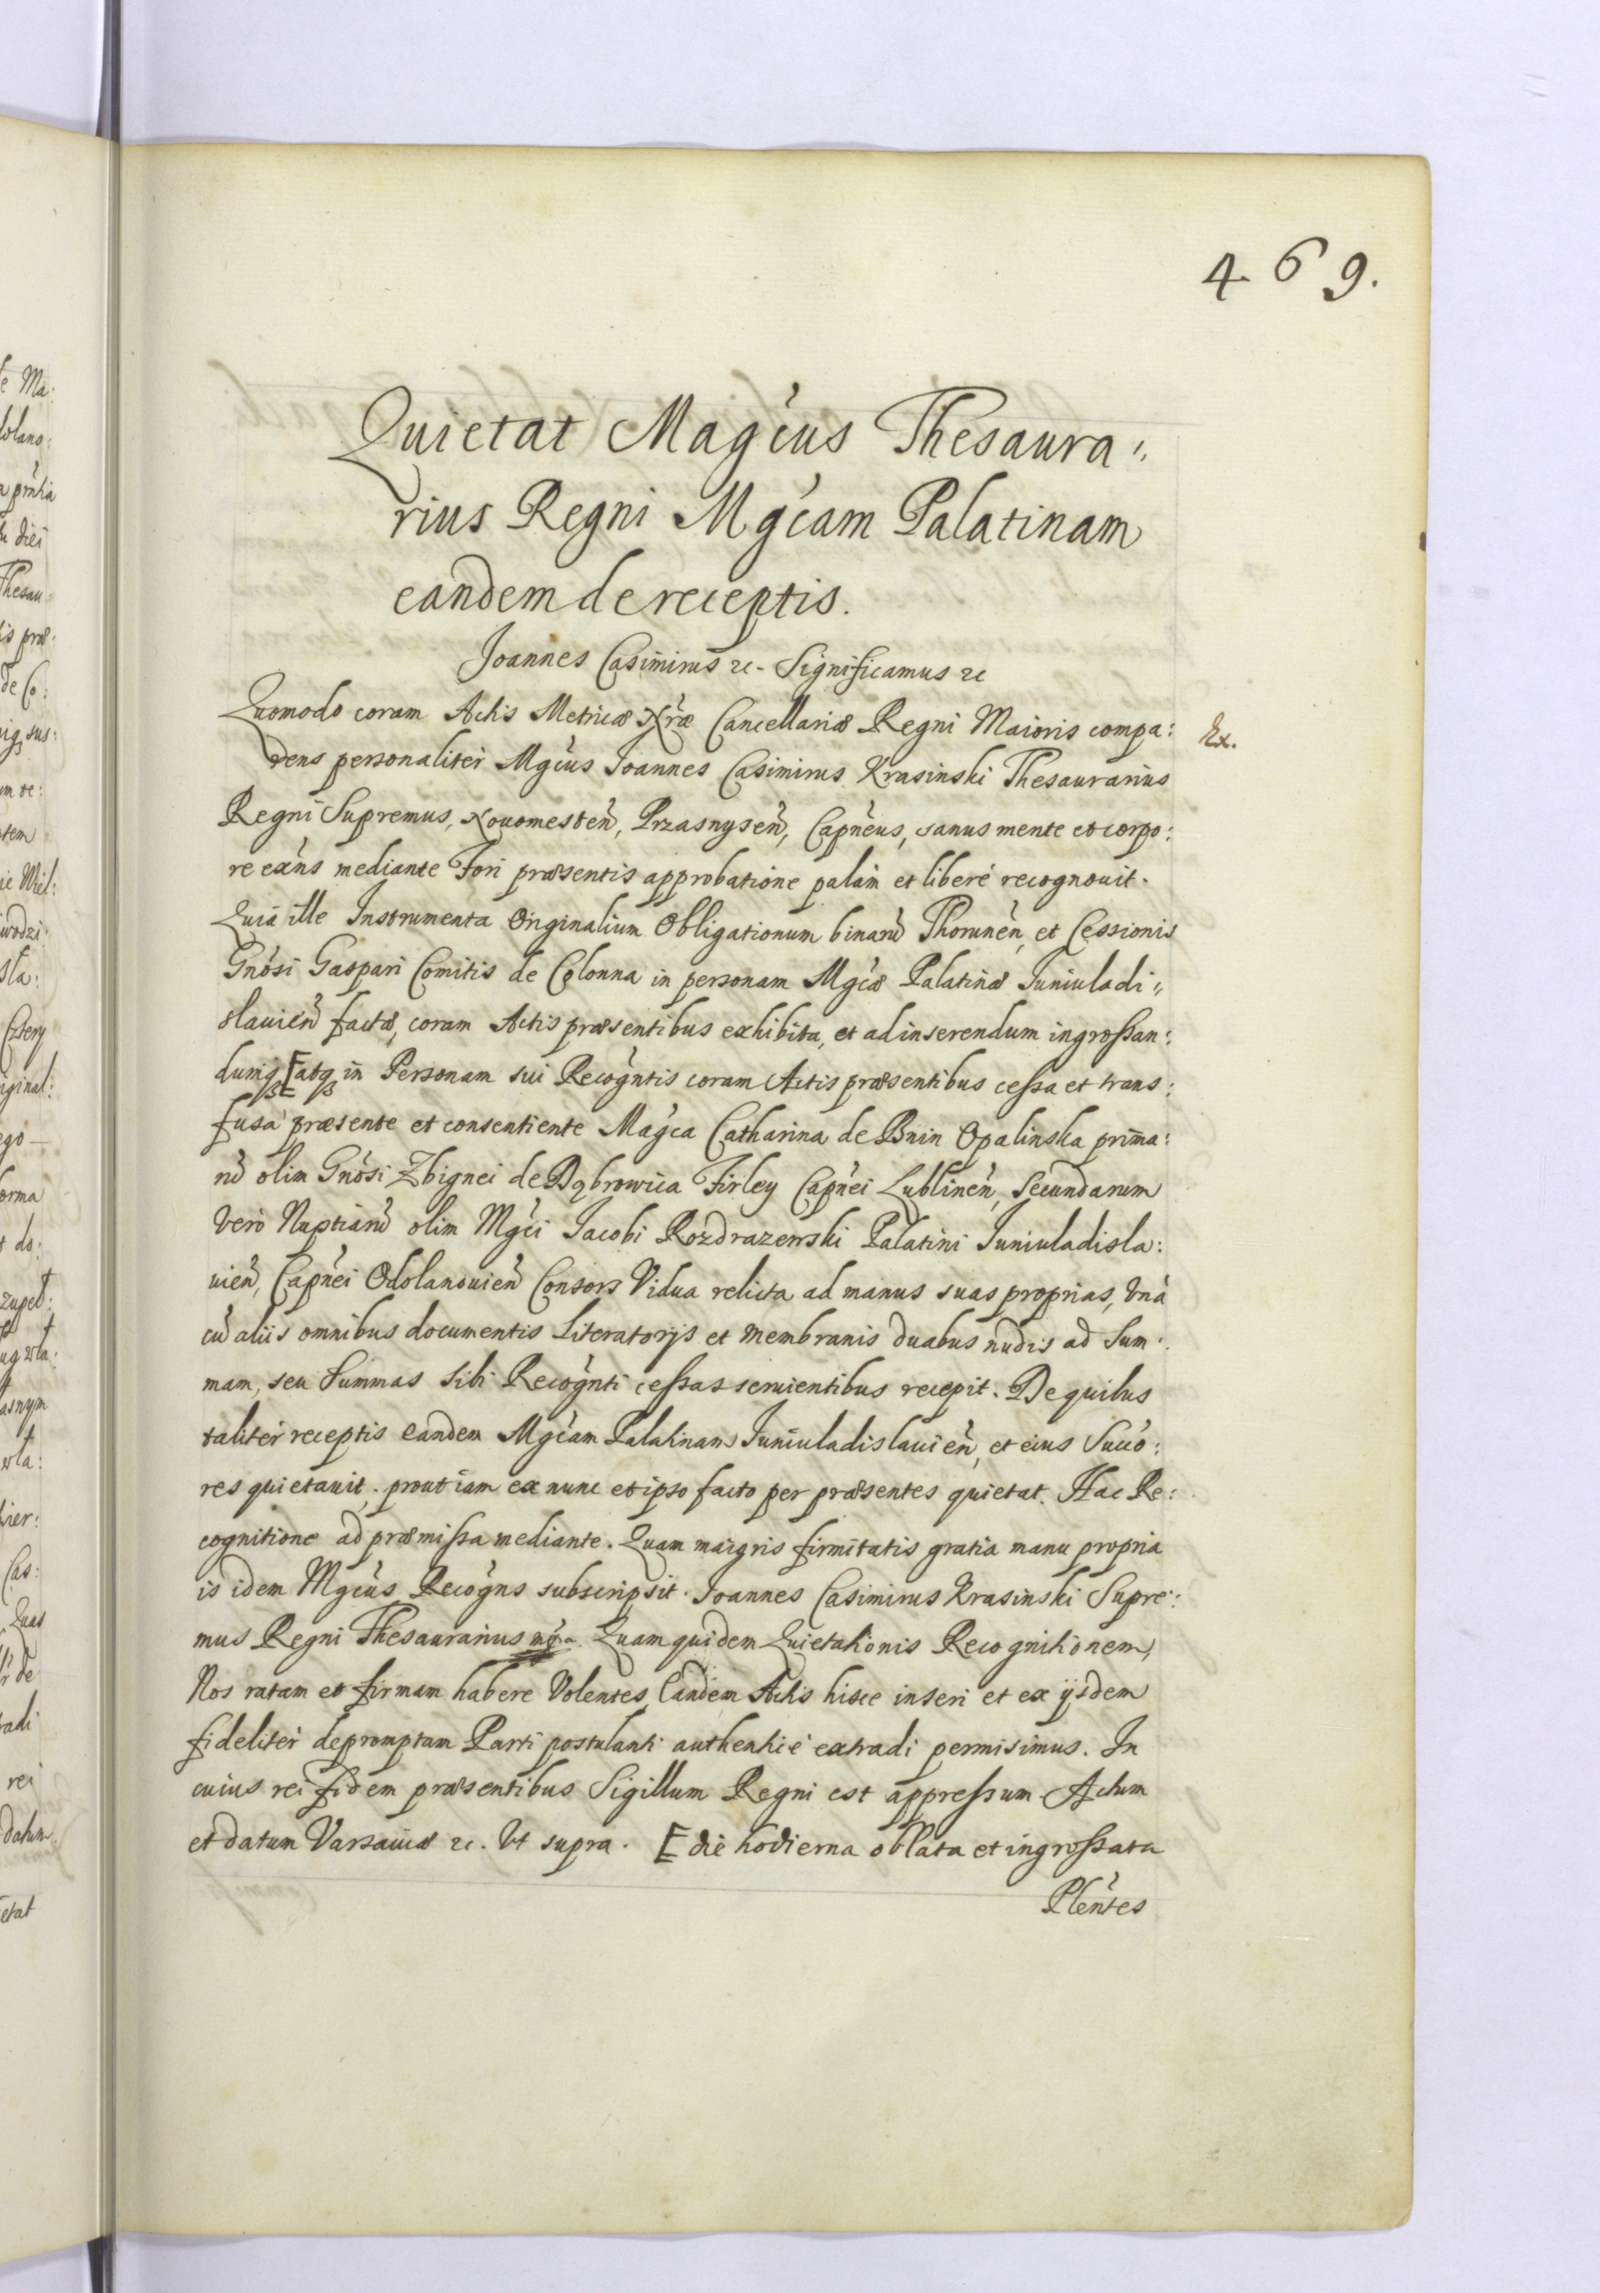 469.
Quietat Magcus Thesaura:
rius Regni Mgcam Palatinam
eandem de receptis.
Joannes Casimirus zc. Significamus zc
Quomodo coram Actis Metricæ Nræ Cancellariæ Regni Maioris compa:
Ex.
rens personaliter Mgcus Joannes Casimirus Krasinski Thesaurarius
Regni Supremus, Nouomesten, Przasnysen, Capneus, sanus mente et corpo:
re exns mediante Fori præsentis approbatione palam et liberé recognouit.
Quia ille Instrumenta Originalium Obligationum binarũ Thorunen, et Cessionis
Gnosi Gaspari Comitis de Colonna in personam Mgcæ Palatinæ Juniuladi:
slauien factæ, coram Actis præsentibus exhibita, et ad inserendum ingroßan:
dumq [atq in Personam sui Recogntis coram Actis præsentibus ceßa et trans:
fusa præsente et consentiente Magca Catharina de Bnin Opalinska prima:
rũ olim Gnosi Zbignei de Dąbrowica Firley Capnei Lublinen, Secundarum
Vero Nuptiarũ olim Mgci Jacobi Rozdrazewski Palatini Juniuladisla:
uien, Capnei Odolanouien Consors Vidua relicta ad manus suas proprias, Vná
cũ aliis omnibus documentis Literatorijs et membranis duabus nudis ad Sum:
mam, seu Summas Sibi Recognti ceßas seruientibus recepit. De quibus
taliter receptis eandem Mgcam Palatinam Juniuladislauien, et eius Succo:
res quietauit. prout iam ex nunc et ipso facto per præsentes quietat. Hac Re:
cognitione ad præmißa mediante. Quam maioris firmitatis gratia manu propria
is idem Mgcus Recogns subscripsit. Joannes Casimirus Krasinski Supre:
mus Regni Thesaurarius mp. Quam quidem Quietationis Recognitionem,
Nos ratam et firmam habere Volentes, Eandem Actis hisce inseri et ex ijsdem
fideliter depromptam Parti postulanti authenticé extradi permisimus. In
cuius rei fidem præsentibus Sigillum Regni est appreßum. Actum
et datum Varsauiæ zc. Ut supra. [die hodierna oblata et ingroßata
Plentes